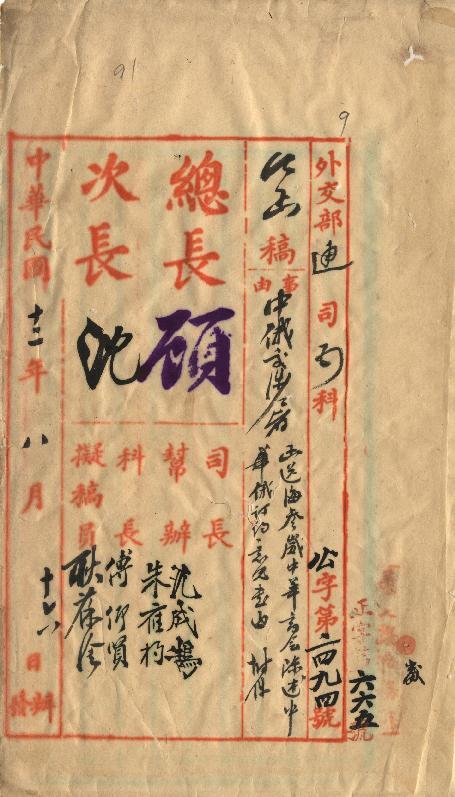 91
9
外交部通司 科
公字第二四九四號
正字第六六五號
公函稿
事由
中俄交涉署
函送海參崴中華商會陳述中
華俄訂約意見書由 附件
總長 顧
次長 沈
司長 沈成鵠
幫辦 朱 
科長 傅仰賢
擬稿員 耿
中華民國十二年八月十 日辦
發